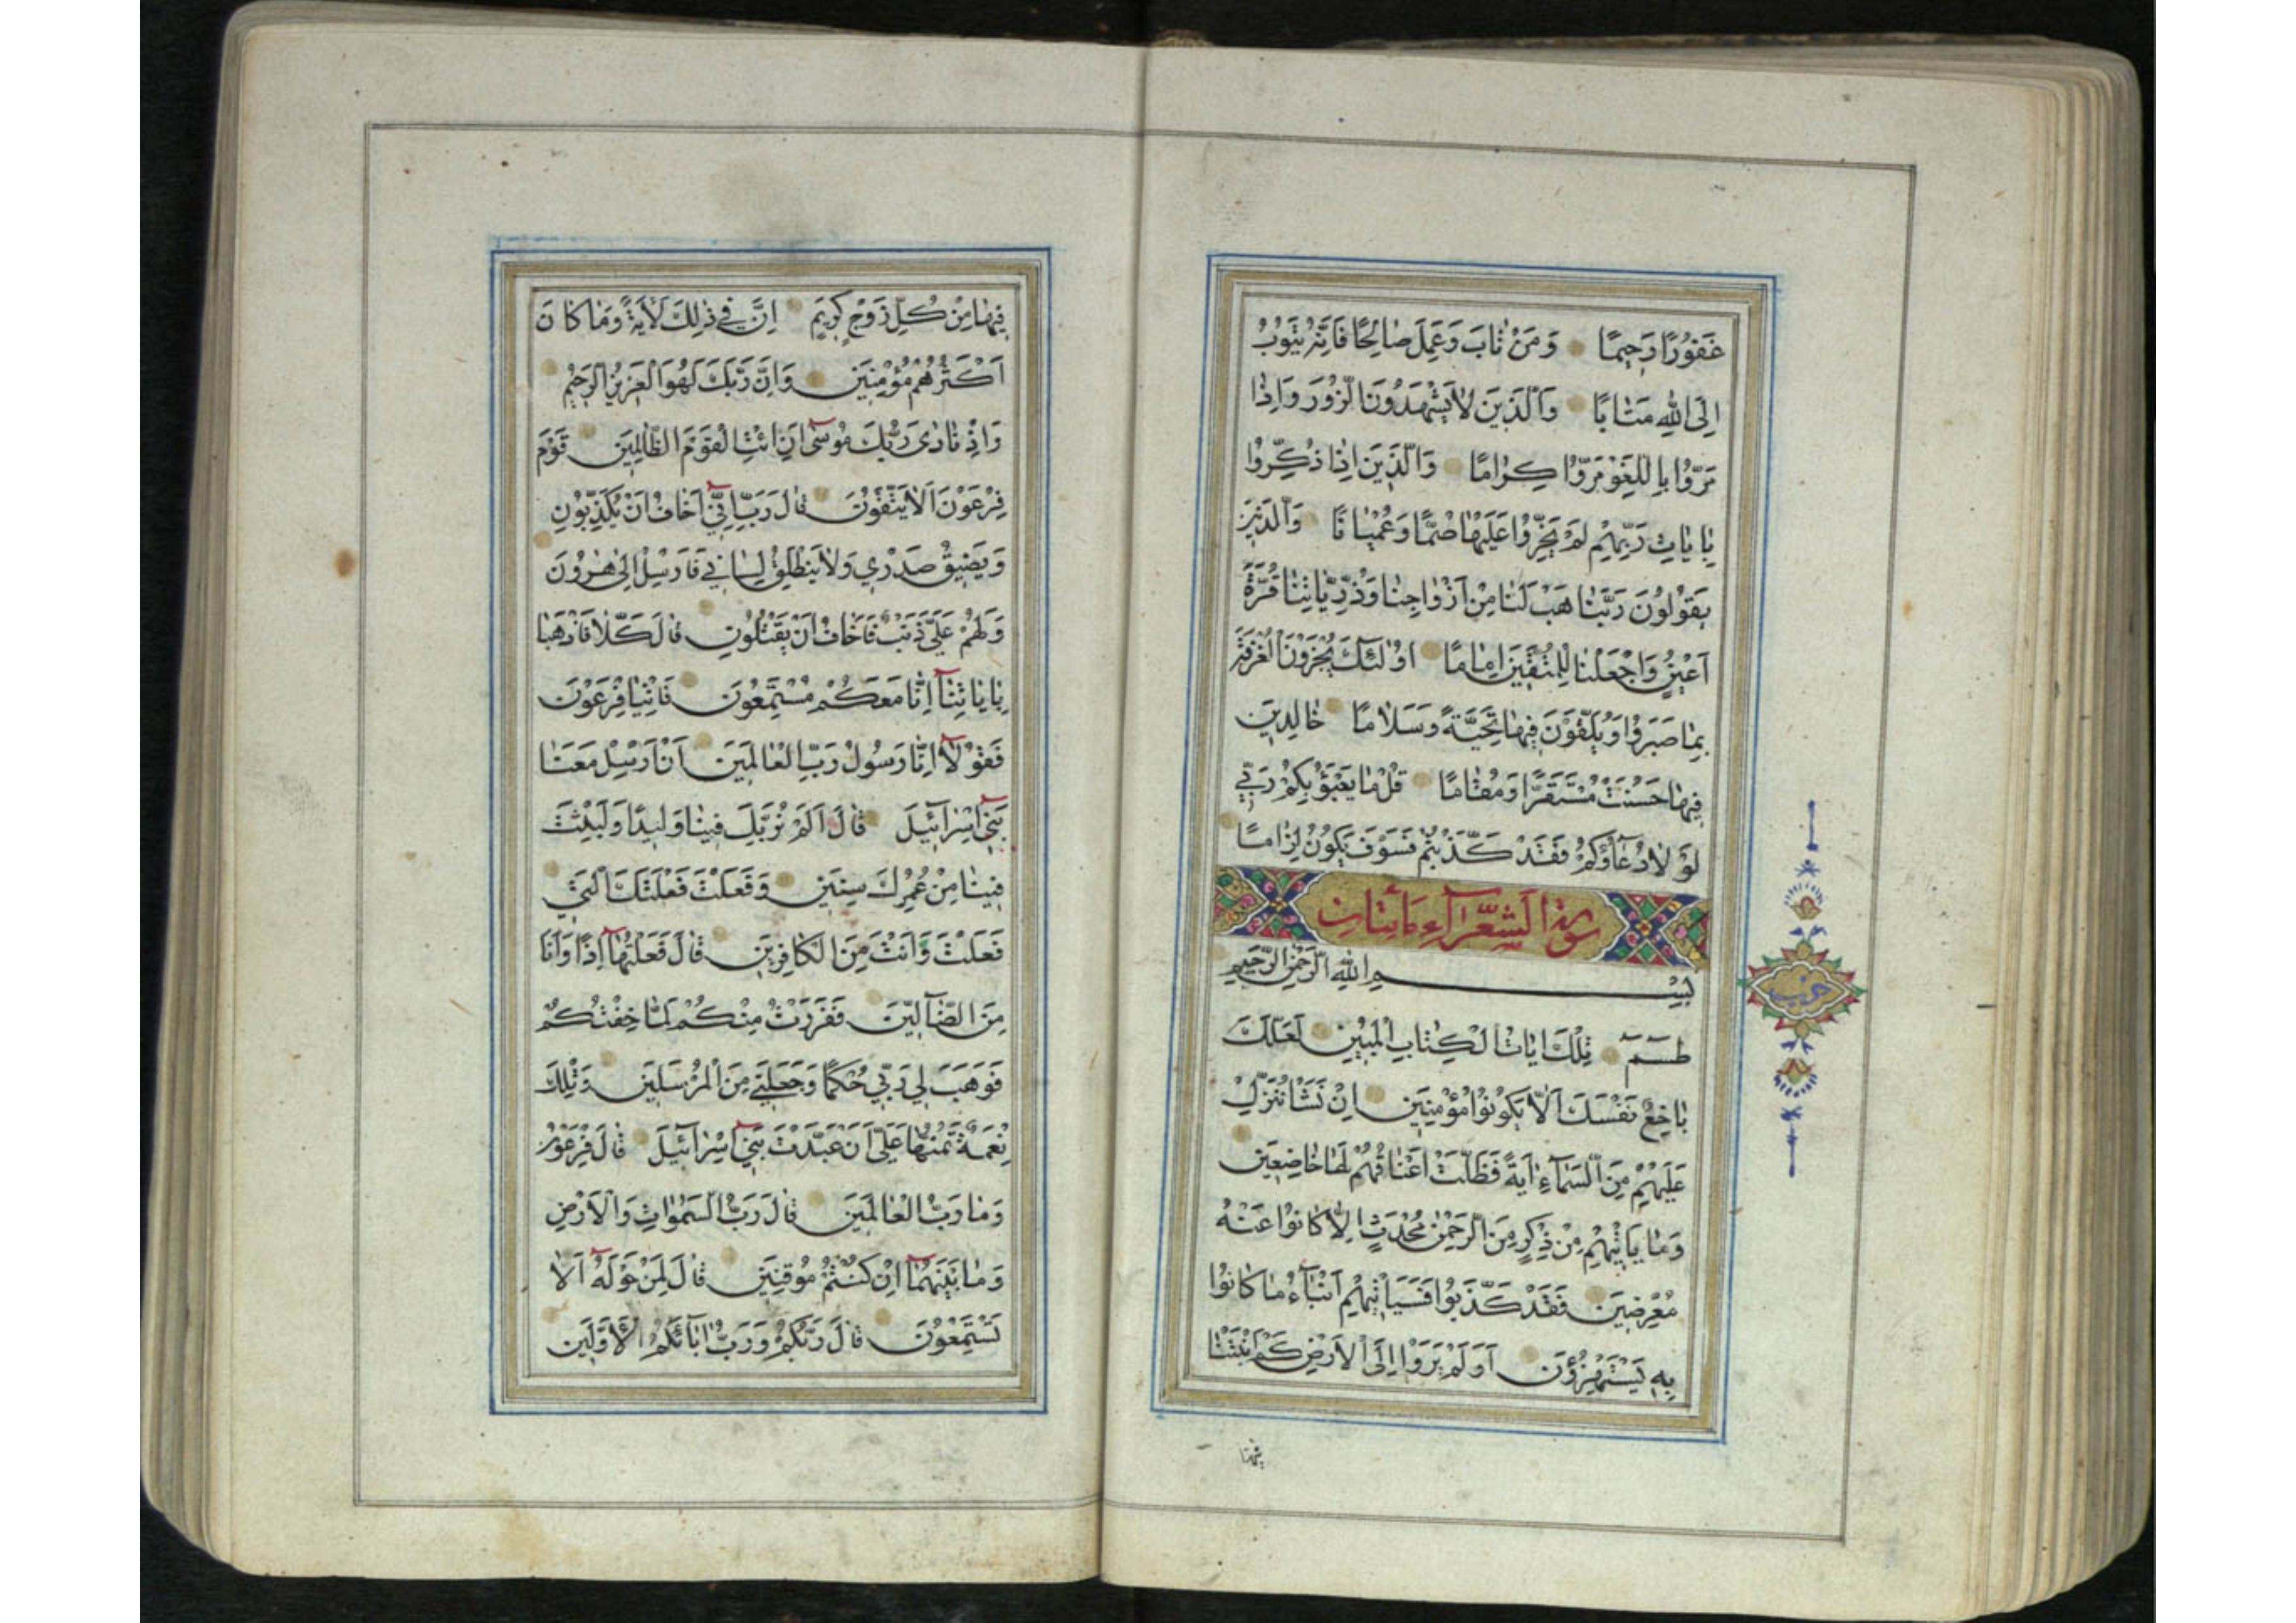 غَفُورًا رَحِيمًا وَمَنْ تَابَ وَعَمِلَ صَالِحًا فَاِنَّهُ يَتُوبُ
اِلَى اللّٰهِ مَتَابًا وَالَّذِينَ لَا يَشْهَدُونَ الزُّورَ وَاِذَا
مَرُّوا بِاللَّغْوِ مَرُّوا كِرَامًا وَالَّذِينَ اِذَا ذُكِّرُوا
بِاٰيَاتِ رَبِّهِمْ لَمْ يَخِرُّوا عَلَيْهَا صُمًّا وَعُمْيَانًا وَالَّذِينَ
يَقُولُونَ رَبَّنَا هَبْ لَنَا مِنْ اَزْوَاجِنَا وَذُرِّيَّاتِنَا قُرَّةَ
اَعْيُنٍ وَاجْعَلْنَا لِلْمُتَّقِينَ اِمَامًا اُولٰئِكَ يُجْزَوْنَ الْغُرْفَةَ
بِمَا صَبَرُوا وَيُلَقَّوْنَ فِيهَا تَحِيَّةً وَسَلَامًا خَالِدِينَ
فِيهَا حَسُنَتْ مُسْتَقَرًّا وَمُقَامًا قُلْ مَا يَعْبَؤُ بِكُمْ رَبِّي
لَوْلَا دُعَاؤُكُمْ فَقَدْ كَذَّبْتُمْ فَسَوْفَ يَكُونُ لِزَامًا
سورة الشعرآء مائتان
بِسْمِ اللّٰهِ الرَّحْمٰنِ الرَّحِيمِ
حزب
طٓسٓمٓ تِلْكَ اٰيَاتُ الْكِتَابِ الْمُبِينِ لَعَلَّكَ
بَاخِعٌ نَفْسَكَ اَلَّا يَكُونُوا مُؤْمِنِينَ اِنْ نَشَأْ نُنَزِّلْ
عَلَيْهِمْ مِنَ السَّمَاءِ اٰيَةً فَظَلَّتْ اَعْنَاقُهُمْ لَهَا خَاضِعِينَ
وَمَا يَأْتِيهِمْ مِنْ ذِكْرٍ مِنَ الرَّحْمٰنِ مُحْدَثٍ اِلَّا كَانُوا عَنْهُ
مُعْرِضِينَ فَقَدْ كَذَّبُوا فَسَيَأْتِيهِمْ اَنْبَاءُ مَا كَانُوا
بِهِ يَسْتَهْزِؤُنَ اَوَلَمْ يَرَوْا اِلَى الْاَرْضِ كَمْ اَنْبَتْنَا
فيها
فِيهَا مِنْ كُلِّ زَوْجٍ كَرِيمٍ اِنَّ فِي ذٰلِكَ لَاٰيَةً وَمَا كَانَ
اَكْثَرُهُمْ مُؤْمِنِينَ وَاِنَّ رَبَّكَ لَهُوَ الْعَزِيزُ الرَّحِيمُ
وَاِذْ نَادَى رَبُّكَ مُوسَى اَنِ ائْتِ الْقَوْمَ الظَّالِمِينَ قَوْمَ
فِرْعَوْنَ اَلَا يَتَّقُونَ قَالَ رَبِّ اِنِّي اَخَافُ اَنْ يُكَذِّبُونِ
وَيَضِيقُ صَدْرِي وَلَا يَنْطَلِقُ لِسَانِي فَاَرْسِلْ اِلَى هٰرُونَ
وَلَهُمْ عَلَيَّ ذَنْبٌ فَاَخَافُ اَنْ يَقْتُلُونِ قَالَ كَلَّا فَاذْهَبَا
بِاٰيَاتِنَا اِنَّا مَعَكُمْ مُسْتَمِعُونَ فَأْتِيَا فِرْعَوْنَ
فَقُولَا اِنَّا رَسُولُ رَبِّ الْعَالَمِينَ اَنْ اَرْسِلْ مَعَنَا
بَنِي اِسْرَائِيلَ قَالَ اَلَمْ نُرَبِّكَ فِينَا وَلِيدًا وَلَبِثْتَ
فِينَا مِنْ عُمُرِكَ سِنِينَ وَفَعَلْتَ فَعْلَتَكَ الَّتِي
فَعَلْتَ وَاَنْتَ مِنَ الْكَافِرِينَ قَالَ فَعَلْتُهَا اِذًا وَاَنَا
مِنَ الضَّالِّينَ فَفَرَرْتُ مِنْكُمْ لَمَّا خِفْتُكُمْ
فَوَهَبَ لِي رَبِّي حُكْمًا وَجَعَلَنِي مِنَ الْمُرْسَلِينَ وَتِلْكَ
نِعْمَةٌ تَمُنُّهَا عَلَيَّ اَنْ عَبَّدْتَ بَنِي اِسْرَائِيلَ قَالَ فِرْعَوْنُ
وَمَا رَبُّ الْعَالَمِينَ قَالَ رَبُّ السَّمٰوَاتِ وَالْاَرْضِ
وَمَا بَيْنَهُمَا اِنْ كُنْتُمْ مُوقِنِينَ قَالَ لِمَنْ حَوْلَهُ اَلَا
تَسْتَمِعُونَ قَالَ رَبُّكُمْ وَرَبُّ اٰبَائِكُمُ الْاَوَّلِينَ